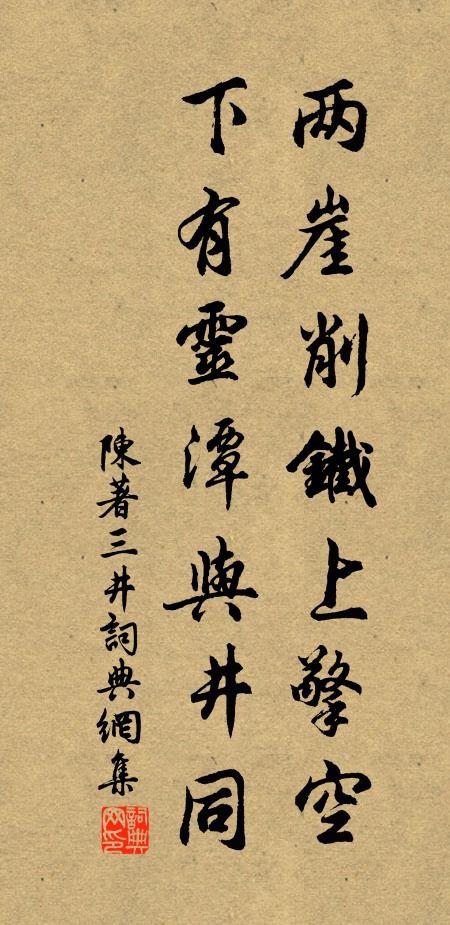 两崖削鐵上擎空
下有靈潭與井同
陳著三井詞典網集
詞典网印